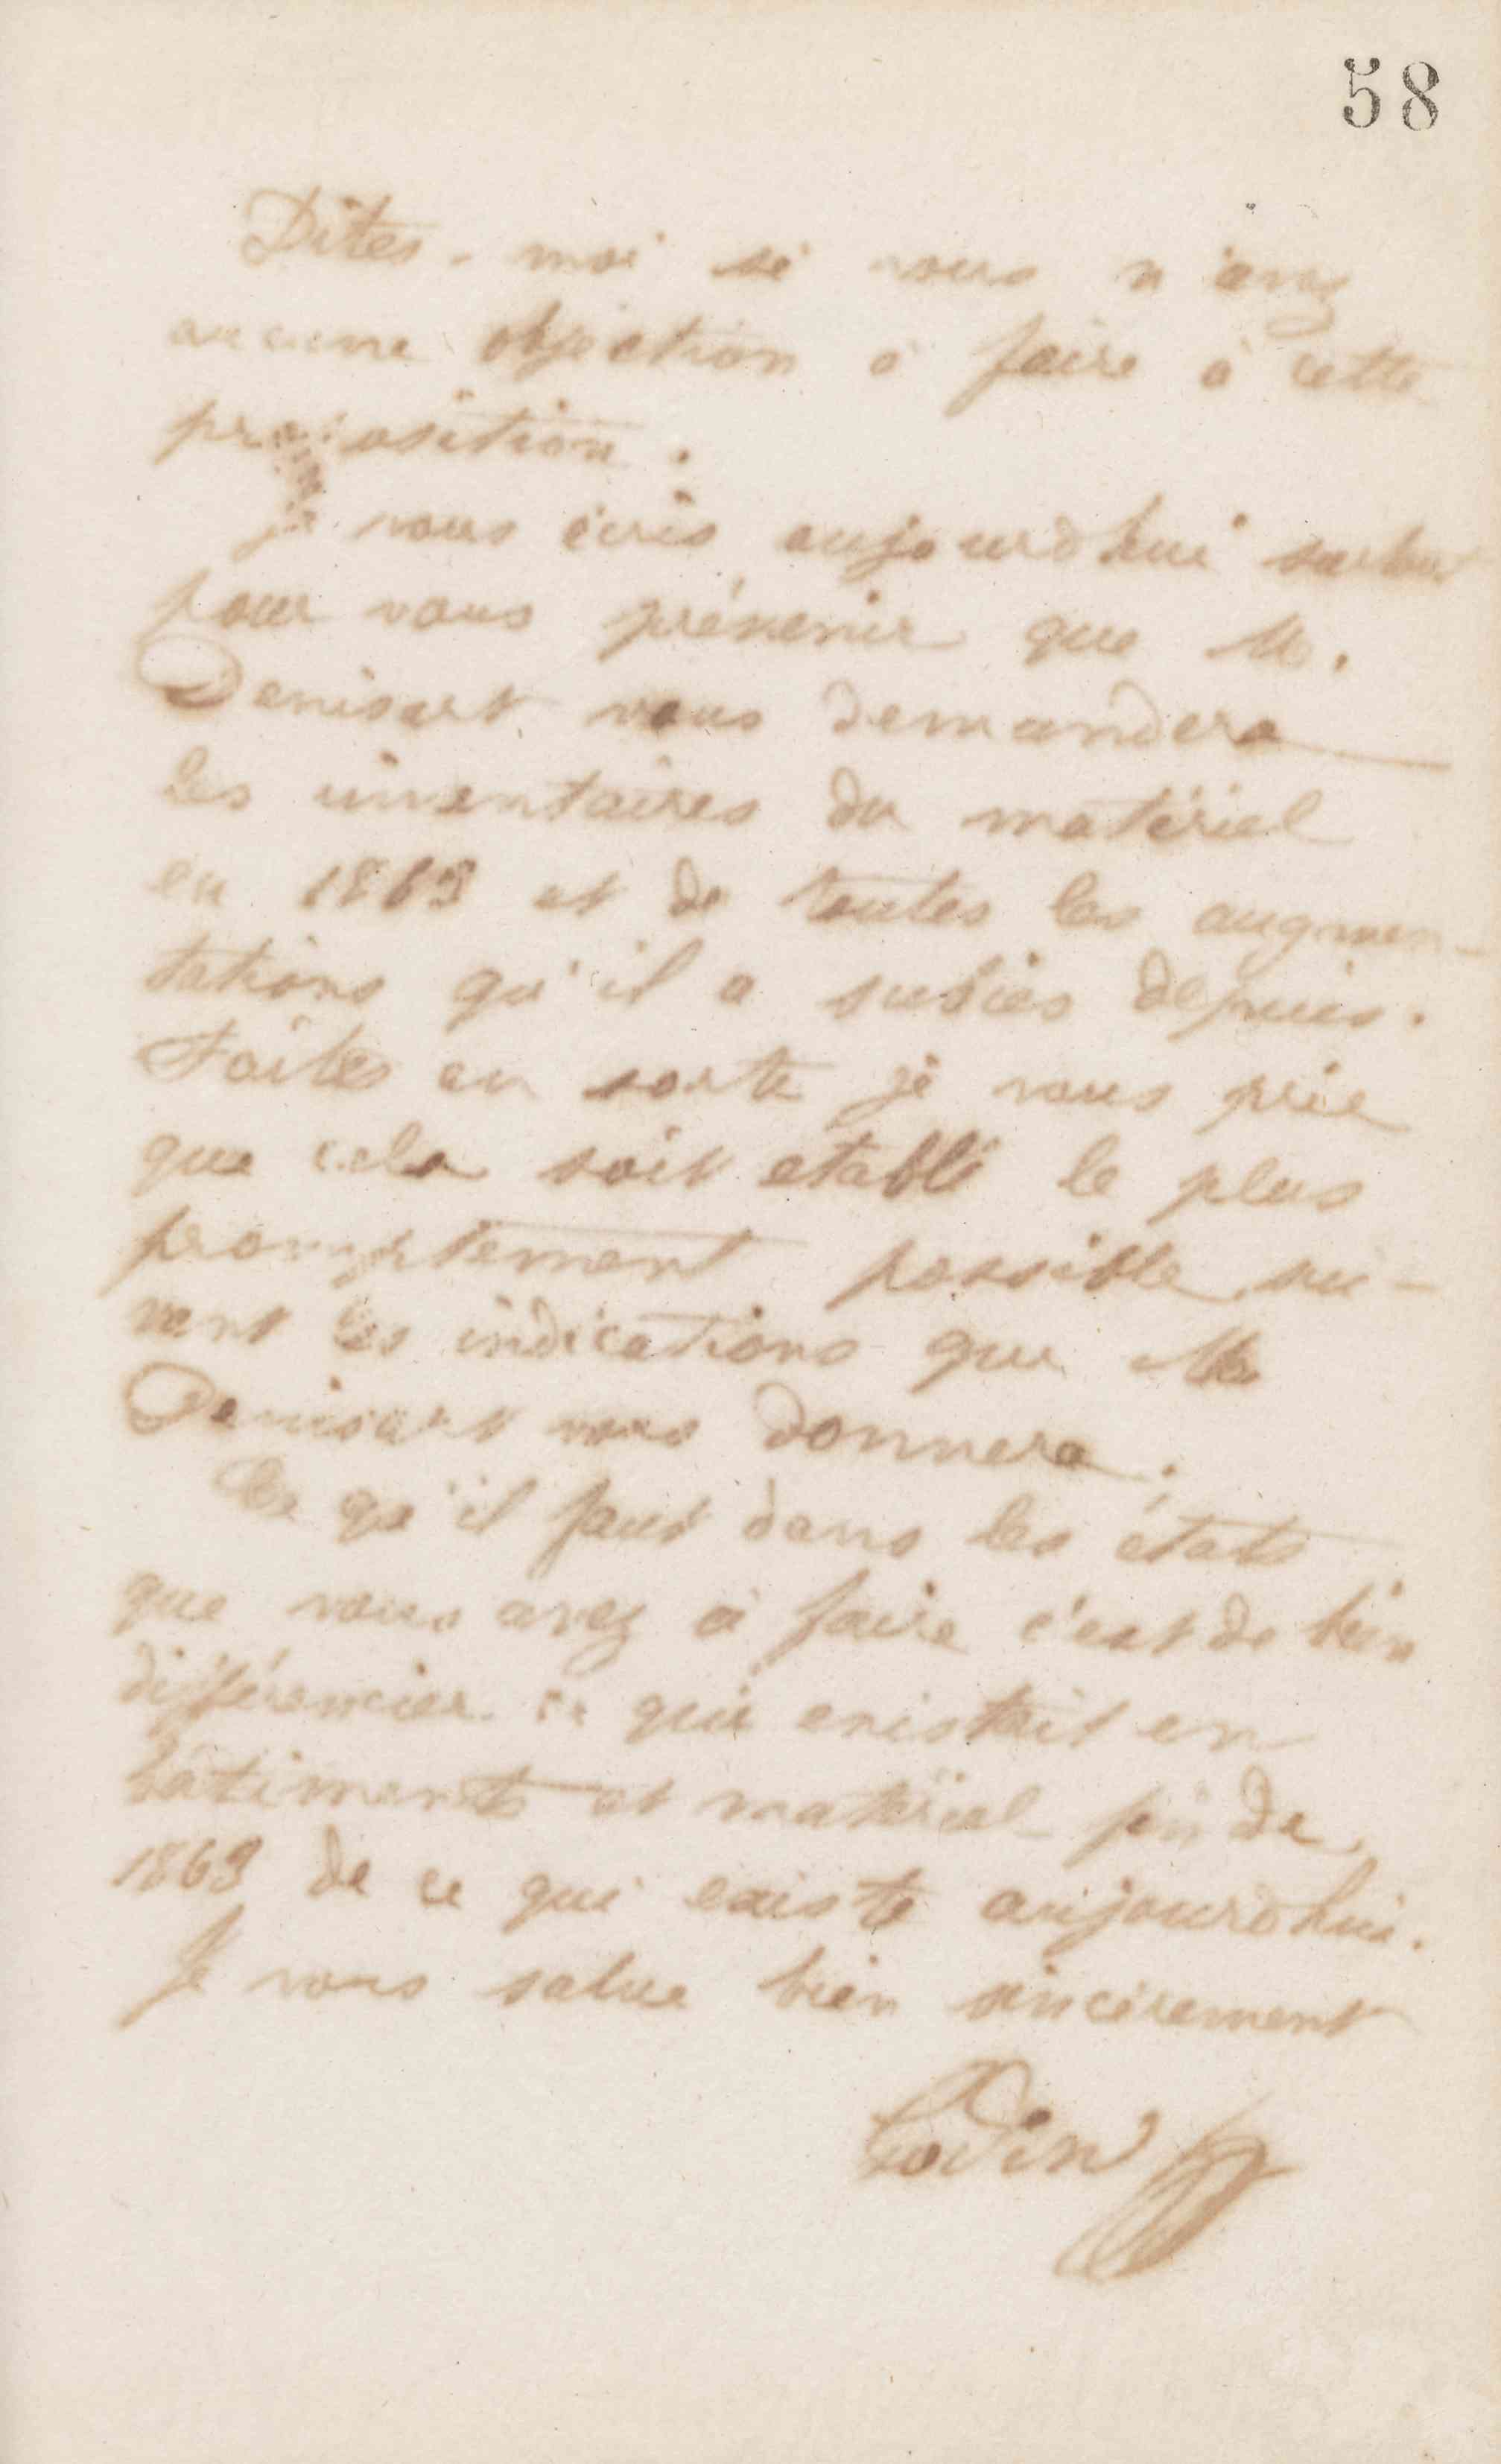 58
Dites-moi si vous n'avez
aucune objection à faire à cette
proposition.
Je vous écris aujourd'hui surtout
pour vous prévenir que M.
Denisart vous demandera
les inventaires du matériel
en 1863 et de toutes les augmen-
tations qu'il a subies depuis.
Faites en sorte je vous prie
que cela soit etabli le plus
promptement possible sui-
vant les indications que M.
Denisart vous donnera.
Ce qu'il faut dans les états
que vous avez à faire c'est de bien
différencier ce qui existait en
bâtiments et matériel fin de
1863 de ce qui existe aujourd'hui.
Je vous salue bien sincèrement
Godin